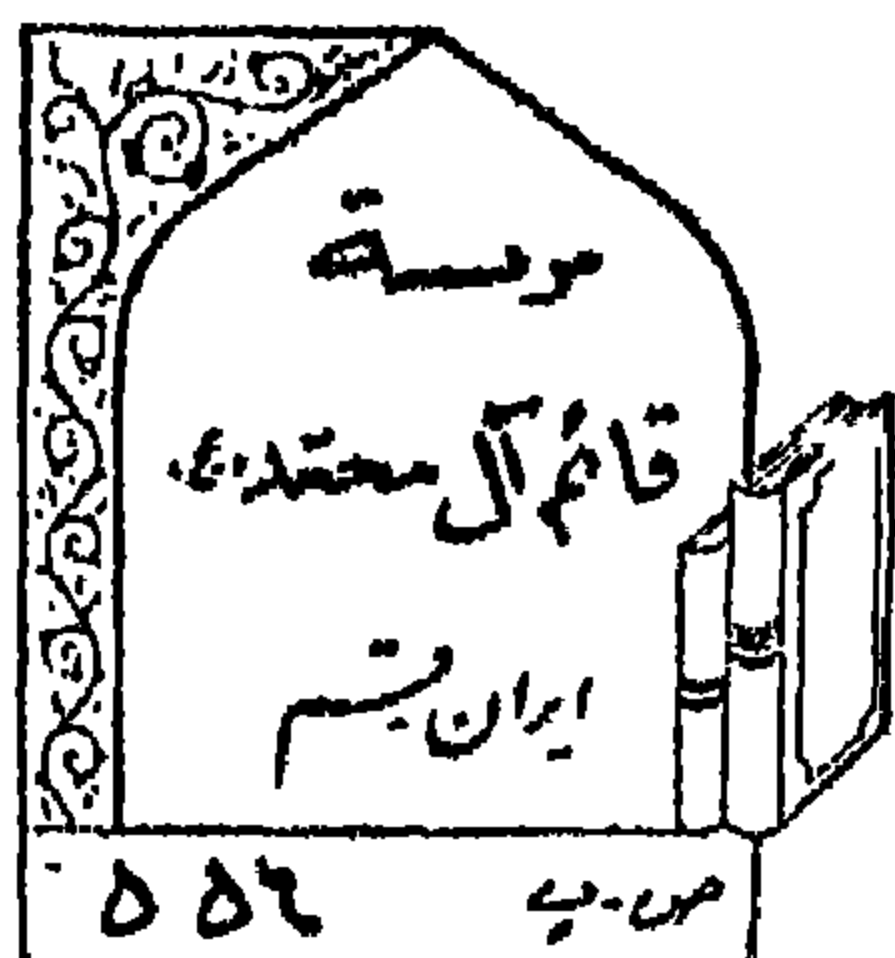 موسسة
قائم آل محمّد «ع»
ایران قـم
ص-پ ٥٥٤